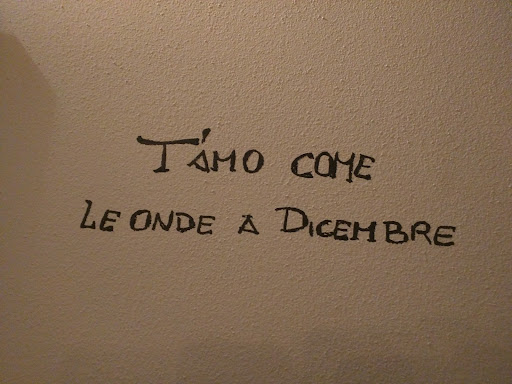 T'AMO COME
LE ONDE A DICEMBRE